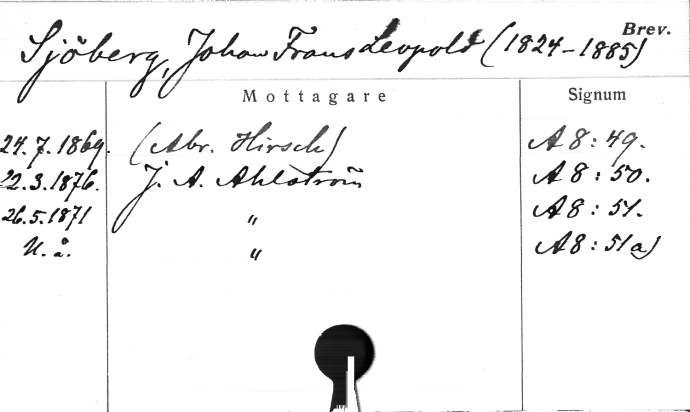 Brev.
Sjöberg, Johan Frans Leopold (1824-1885)
Mottagare Signum
24.7.1869. (Abr. Hirsch) A8:49.
22.3.1876. J. A. Ahlström A8:50.
26.5.1871 " A8:51.
U. å. " A8:51a)